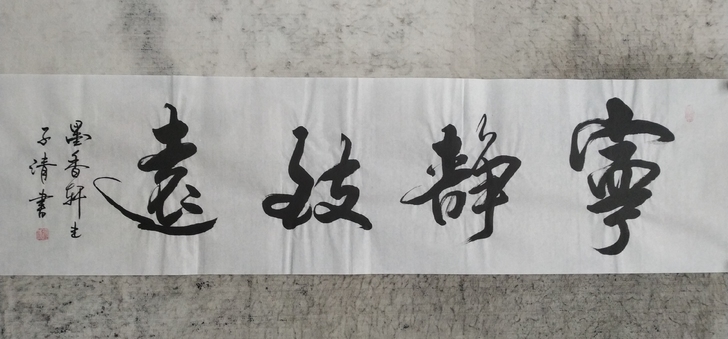 寧靜致遠
墨香軒主
子清書